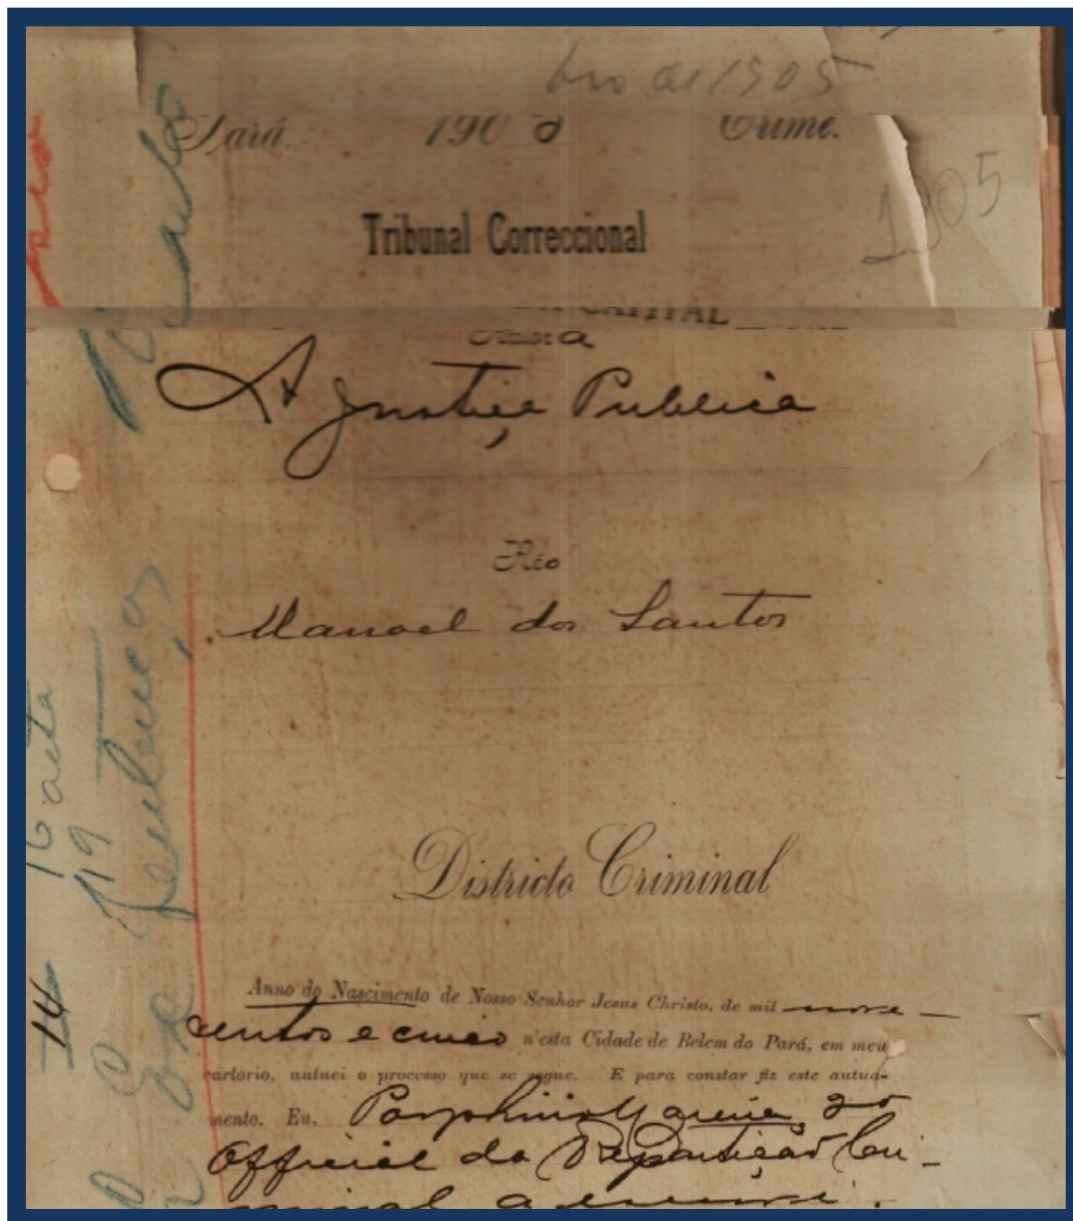 de 1905
Pará 190 Crime.
1905
Tribunal Correccional
CAPITAL
Autora
A Justiça Publica
Réo
Manoel dos Santos
Districto Criminal
Anno do Nascimento de Nosso Senhor Jesus Christo, de mil nove-
centos e cinco n'esta Cidade de Belem do Pará, em meu
cartorio, autuei o processo que se segue. E para constar fiz este autua-
mento. Eu, Porphirio 2º
Official da Repartição Cri-
minal a escrevi.
14
19